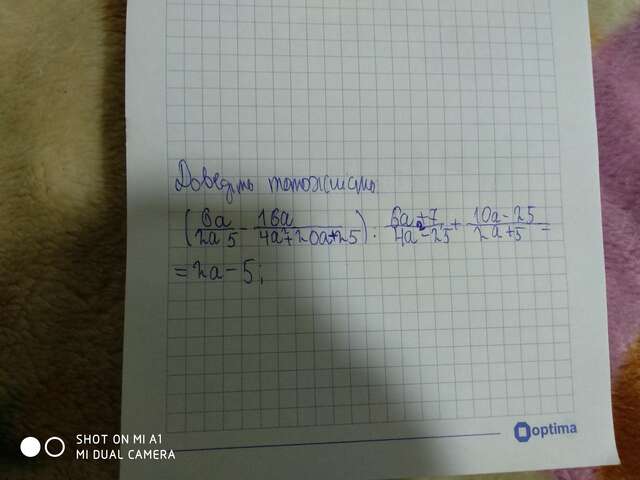 Доведіть тотожність
(6a/2a 5 - 16a/4a²+20a+25) : 6a+7/4a²-25 + 10a-25/2a+5 =
= 2a - 5;
optima
SHOT ON MI A1
MI DUAL CAMERA